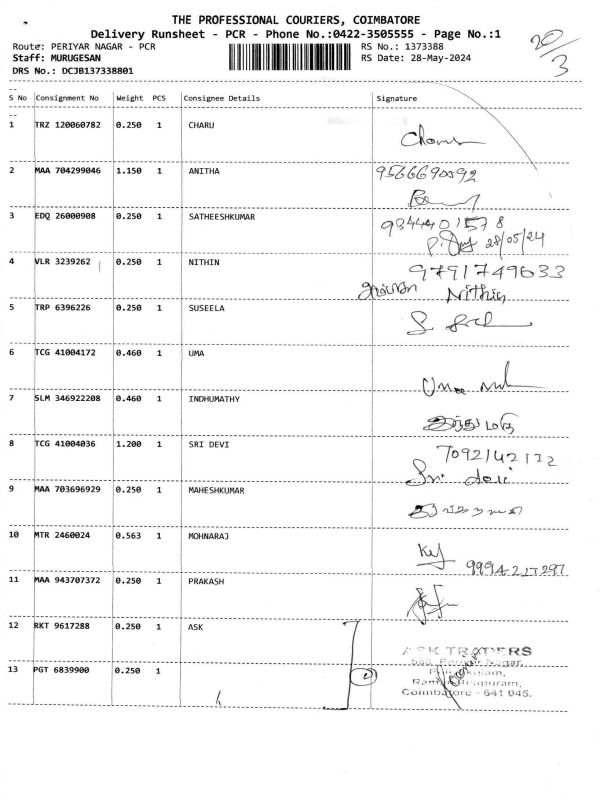 THE PROFESSIONAL COURIERS, COIMBATORE
Delivery Runsheet - PCR - Phone No.:0422-3505555 - Page No.:1
Route: PERIYAR NAGAR - PCR RS No.: 1373388
Staff: MURUGESAN RS Date: 28-May-2024
DRS No.: DCJB137338801
20/3
S No Consignment No Weight PCS Consignee Details Signature
1 TRZ 120060782 0.250 1 CHARU
2 MAA 704299046 1.150 1 ANITHA 9566690092
3 EDQ 26000908 0.250 1 SATHEESHKUMAR 9344401578
28/05/24
4 VLR 3239262 0.250 1 NITHIN 9791749633
Nithin
5 TRP 6396226 0.250 1 SUSEELA
6 TCG 41004172 0.460 1 UMA
Uma
7 SLM 346922208 0.460 1 INDHUMATHY
இந்துமதி
8 TCG 41004036 1.200 1 SRI DEVI 7092142172
Sri devi
9 MAA 703696929 0.250 1 MAHESHKUMAR
10 MTR 2460024 0.563 1 MOHNARAJ
9994217297
11 MAA 943707372 0.250 1 PRAKASH
12 RKT 9617288 0.250 1 ASK
ASK TRADERS
Nagar,
13 PGT 6839900 0.250 1
Coimbatore - 641 045.